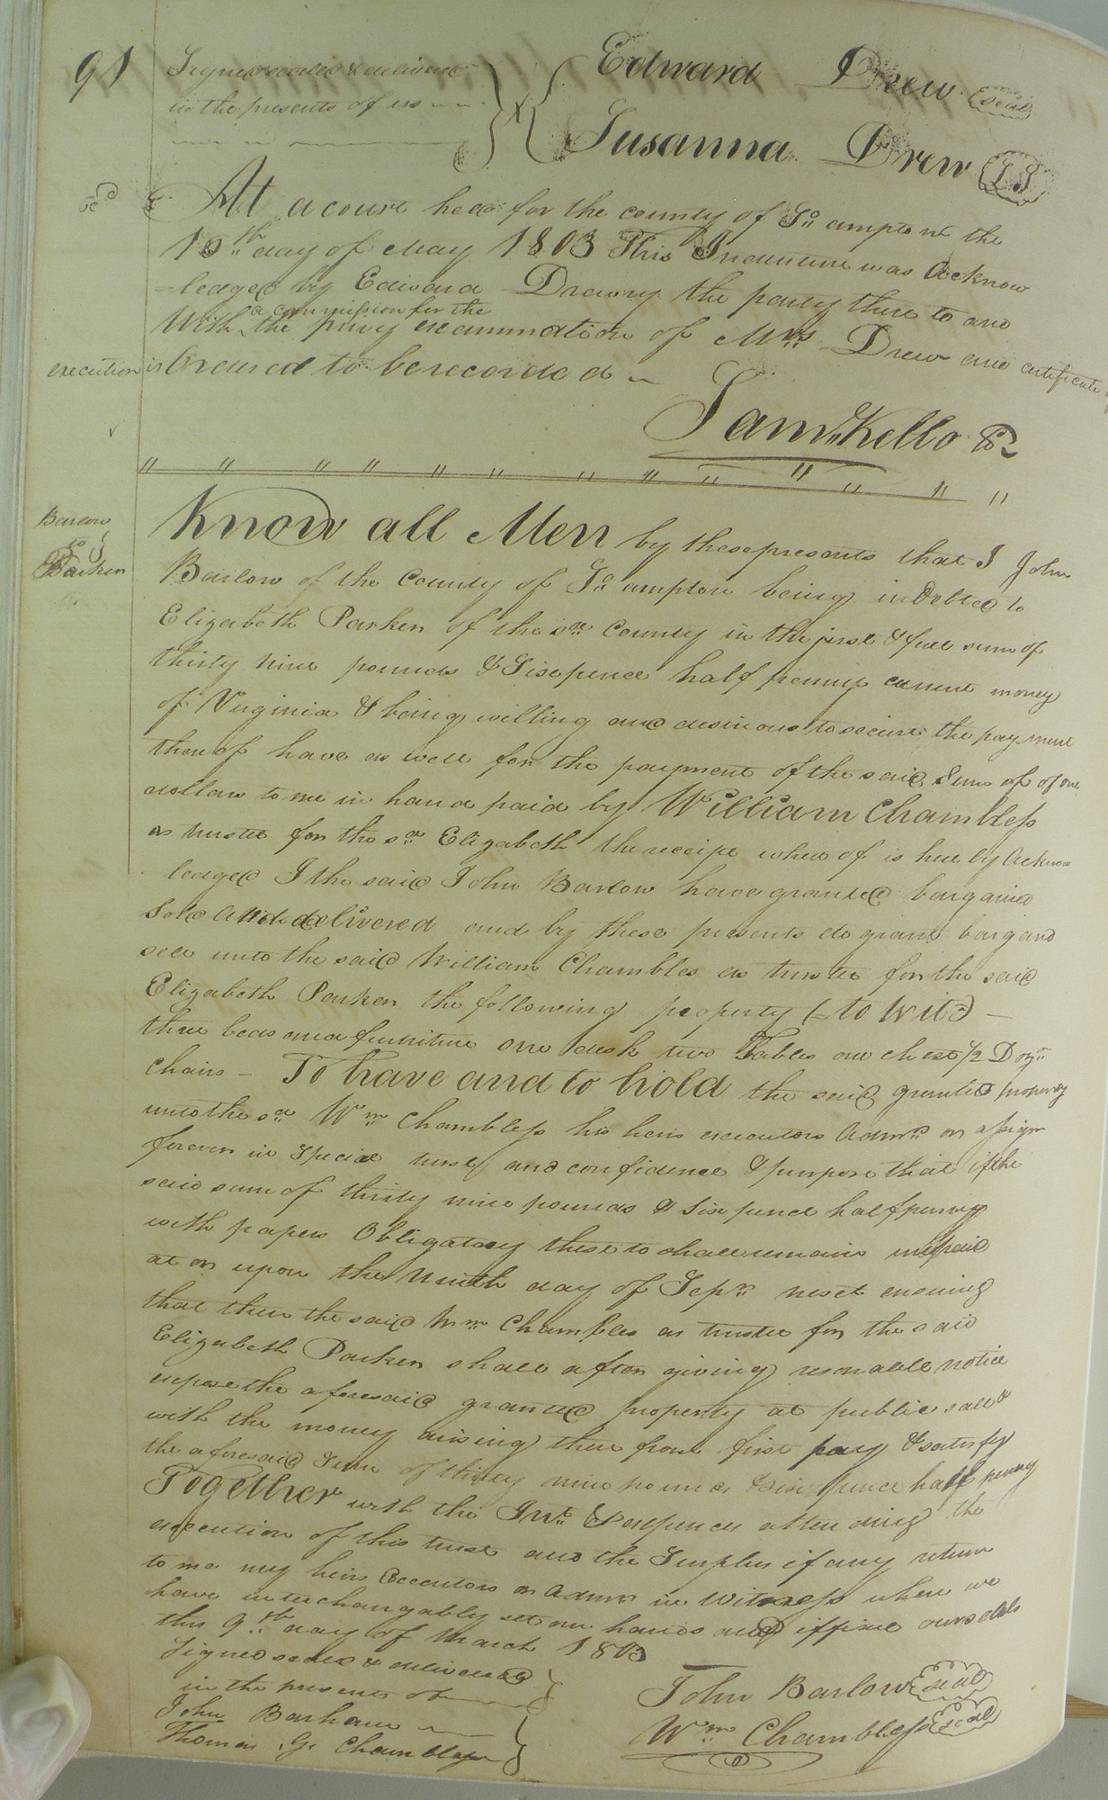 91
Signed sealed & delivered
in the presents of us
Edward Drew seal
Susanna Drew LS
At a court held for the county of So.ampton the
day of May 1803 This Indenture was Acknow
ledged by Edward Drewry the party there to and
a commission for the
With the privy examination of Mrs Drew and certificate of
execution is Ordered to be recorded
Saml Kello
Barlow
to
Parker
Know all Men by these presents that I John
Barlow of the County of So.ampton being indebted to
Elizabeth Parker of the sd County in the just & full sum of
thirty nine pounds & Sixpence half penny current money
of Virginia & being willing and desirous to secure the payment
thereof have as well for the payment of the said Sum as of one
dollar to me in hand paid by William Chambless
as trustee for the sd Elizabeth the receipt where of is here by Acknow
ledged I the said John Barlow have granted bargained
Sold and delivered and by these presents do grant barg and
sell unto the said William Chambles as trustee for the said
Elizabeth Parker the following property (to wit)
three beds and furniture one desk two Tables one chest 1/2 Dozn
chairs - To have and to hold the said granted property
unto the sd Wm Chambless his heirs executors Admrs or assigns
forever in special trust and confidence & purpose that if the
said sum of thirty nine pounds & Six pence half penny
with papers Obligatory these to shall remain unpaid
at or upon the Ninth day of Sepr next ensuing
that then the said Wm Chambles as trustee for the said
Elizabeth Parker shall after giving resonable notice
expose the aforesaid granted property at public sale &
with the money arising there from first pay & satisfy
the aforesaid Sum of thirty nine pounds & Six pence half penny
Together with the Int. & expences attending the
execution of this trust and the Surplus if any return
to me my heirs Executors or admrs in Witness where we
have interchangably set our hands and affixed our seals
this 9th day of March 1803
Signed sealed & delivered
in the presents of
John Barham
Thomas G. Chambless
John Barlow seal
Wm Chambless seal